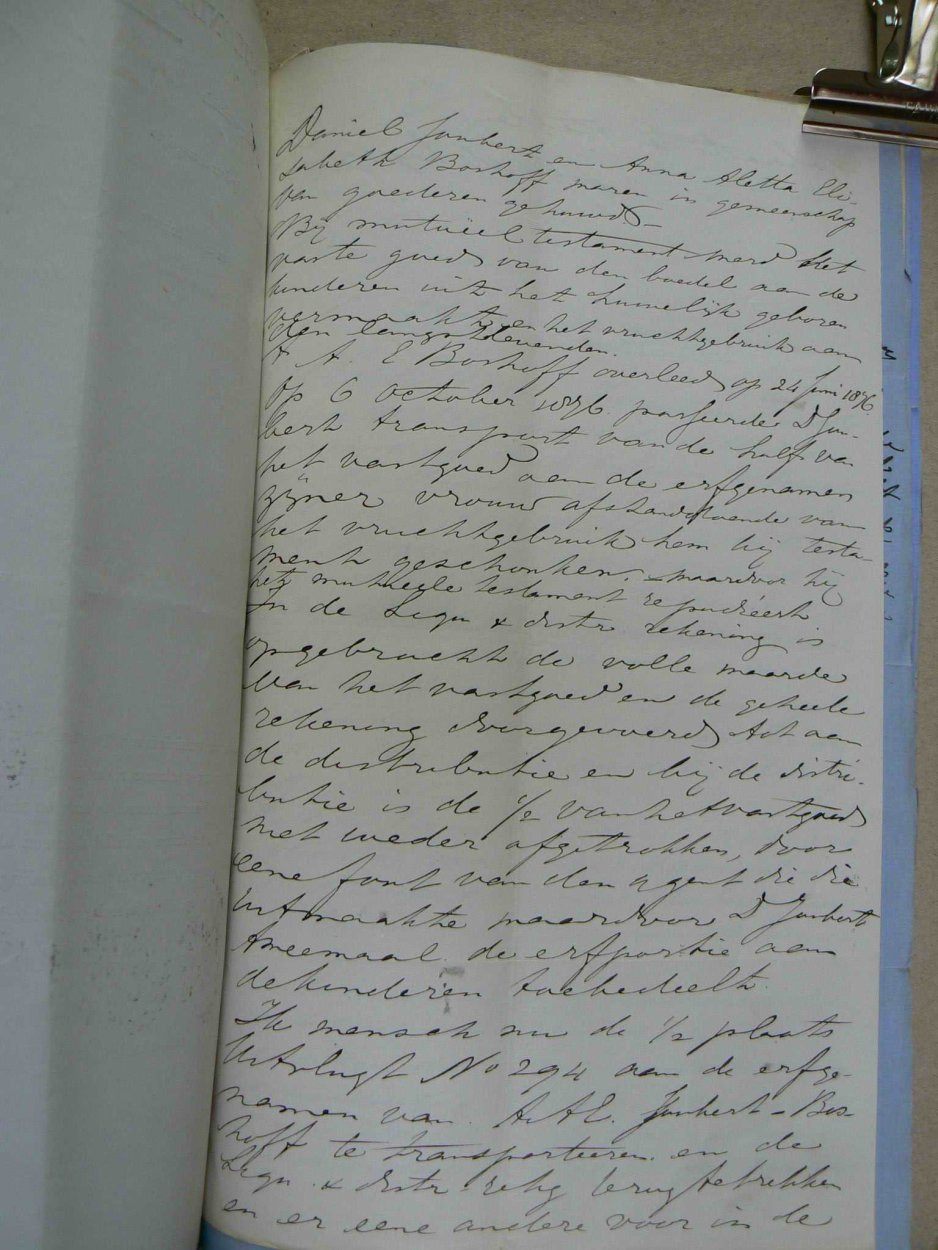 Daniel Joubert en Anna Aletta Eli-
sabeth Boshoff waren in gemeenschap
van goederen gehuwd –
Bij mutuëel testament werd het
vaste goed van den boedel aan de
kinderen uit het huwelijk geboren
vermaakt en het vruchtgebruik aan
den langstlevenden.
A A E Boshoff overleed op 24 Juni 1876
Op 6 October 1876 passeerde D Jou-
bert transport van de half van
het vastgoed aan de erfgenamen
zijner vrouw afstanddoende van
het vruchtgebruik hem bij testa-
ment geschonken. – waardoor hij
het mutueele testament repudieert
In de Liqu & distr rekening is
opgebracht de volle waarde
van het vastgoed en de geheele
rekening doorgevoerd tot aan
de distributie en bij de distri-
butie is de 1/2 van het vastgoed
niet weder afgetrokken, door
eene fout van den agent die die
uitmaakte waardoor D Joubert
tweemaal de erfportie aan
de kinderen toebedeelt.
Ik wensch nu de 1/2 plaats
Uitvlugt No 294 aan de erfge-
namen van A.A.E. Joubert – Bos-
hoff te transporteeren en de
Liqu. & distr. rekg terug te trekken
en er eene andere voor in de